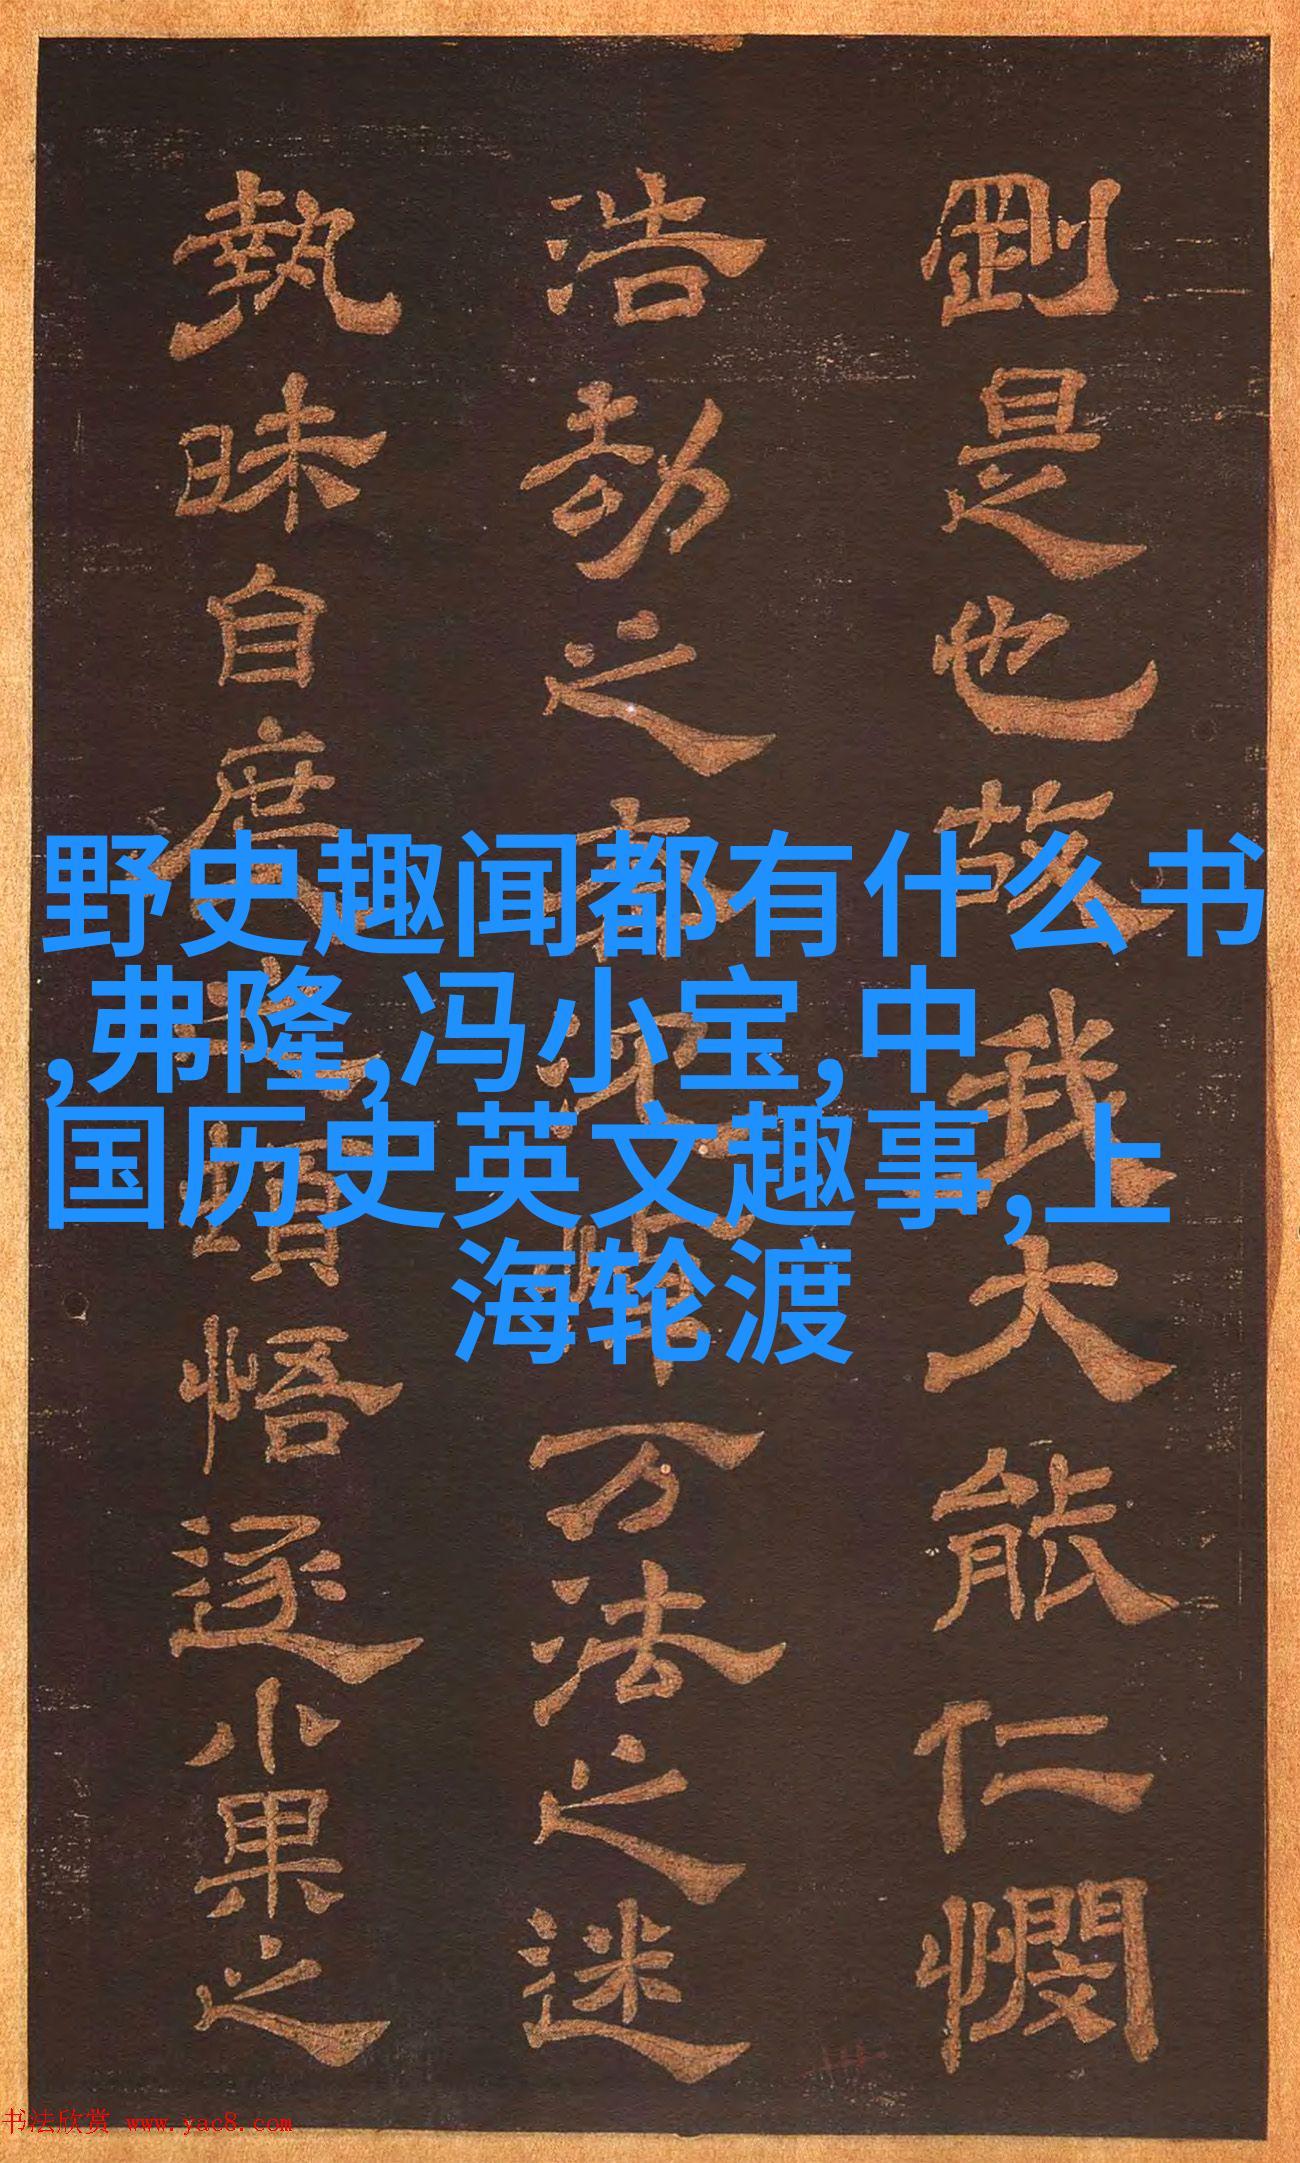 野史趣闻都有什么书
,弗隆,冯小宝,中
国历史英文趣事,上
海轮渡
剛是也故我大能仁憫
浩劫之万法之迷
執昧自度悟逐小果之
书法欣赏 www.yac8.com